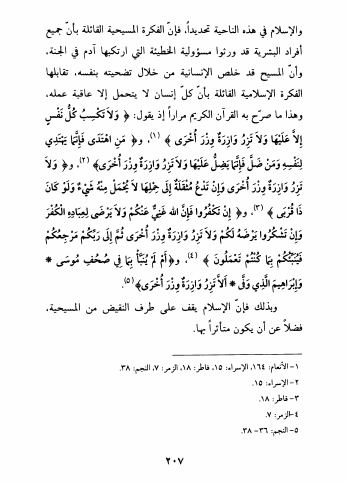 والإسلام في هذه الناحية تحديداً، فإنّ الفكرة المسيحية القائلة بأنّ جميع
أفراد البشرية قد ورثوا مسؤولية الخطيئة التي ارتكبها آدم في الجنة،
وأنّ المسيح قد خلص الإنسانية من خلال تضحيته بنفسه، تقابلها
الفكرة الإسلامية القائلة بأنّ كلّ إنسان لا يتحمل إلا عاقبة عمله،
وهذا ما صرّح به القرآن الكريم مراراً إذ يقول: ﴿ وَلاَ تَكْسِبُ كُلُّ نَفْسٍ
إِلاَّ عَلَيْهَا وَلاَ تَزِرُ وَازِرَةٌ وِزْرَ أُخْرَى ﴾ (١)، و﴿ مَنِ اهْتَدَى فَإِنَّمَا يَهْتَدِي
لِنَفْسِهِ وَمَنْ ضَلَّ فَإِنَّمَا يَضِلُّ عَلَيْهَا وَلاَ تَزِرُ وَازِرَةٌ وِزْرَ أُخْرَى﴾(٢)، و﴿ وَلاَ
تَزِرُ وَازِرَةٌ وِزْرَ أُخْرَى وَإِنْ تَدْعُ مُثْقَلَةٌ إِلَى حِمْلِهَا لاَ يُحْمَلْ مِنْهُ شَيْءٌ وَلَوْ كَانَ
ذَا قُرْبَى ﴾ (٣)، و﴿ إِنْ تَكْفُرُوا فَإِنَّ الله غَنِيٌّ عَنْكُمْ وَلاَ يَرْضَى لِعِبَادِهِ الْكُفْرَ
وَإِنْ تَشْكُرُوا يَرْضَهُ لَكُمْ وَلاَ تَزِرُ وَازِرَةٌ وِزْرَ أُخْرَى ثُمَّ إِلَى رَبِّكُمْ مَرْجِعُكُمْ
فَيُنَبِّئُكُمْ بِمَا كُنْتُمْ تَعْمَلُونَ ﴾ (٤)، و﴿أَمْ لَمْ يُنَبَّأْ بِمَا فِي صُحُفِ مُوسَى *
وَإِبْرَاهِيمَ الَّذِي وَفَّى * أَلاَّ تَزِرُ وَازِرَةٌ وِزْرَ أُخْرَى﴾(٥).
وبذلك فإنّ الإسلام يقف على طرف النقيض من المسيحية،
فضلاً عن أن يكون متأثراً بها.
١- الأنعام: ١٦٤، الإسراء: ١٥، فاطر: ١٨، الزمر: ٧، النجم: ٣٨.
٢- الإسراء: ١٥.
٣- فاطر: ١٨.
٤- الزمر: ٧.
٥- النجم: ٣٦- ٣٨.
٢٠٧